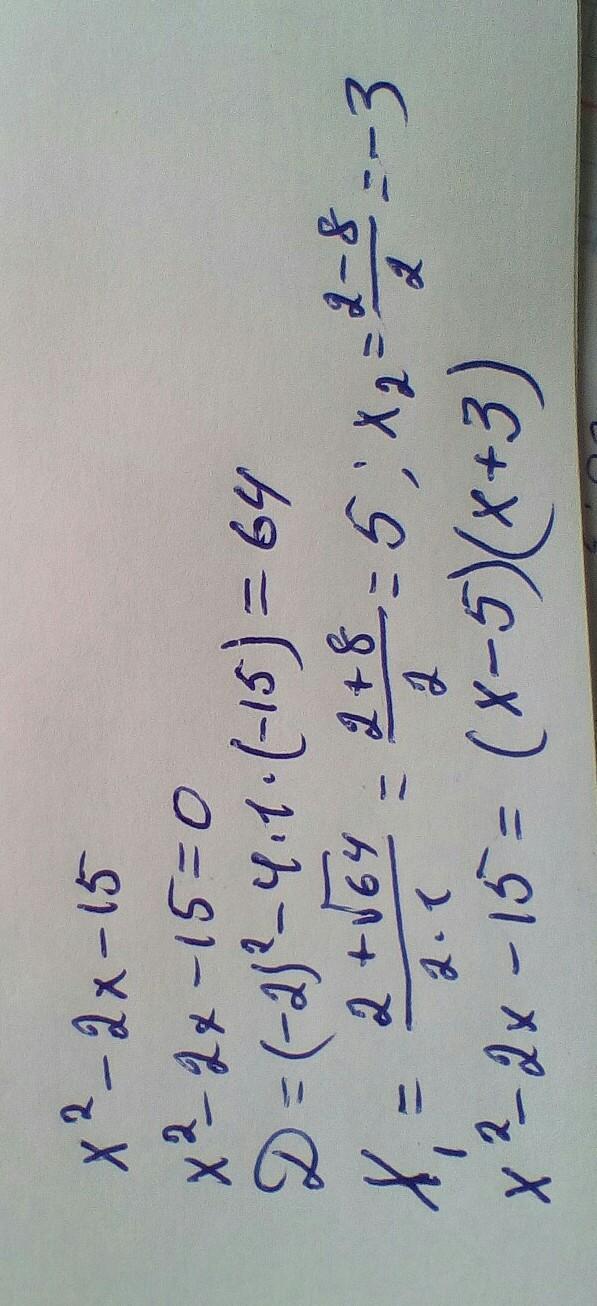 x² - 2x - 15
x² - 2x - 15 = 0
D = (-2)² - 4·1·(-15) = 64
x₁ = (2 + √64)/(2·1) = (2 + 8)/2 = 5; x₂ = (2 - 8)/2 = -3
x² - 2x - 15 = (x - 5)(x + 3)